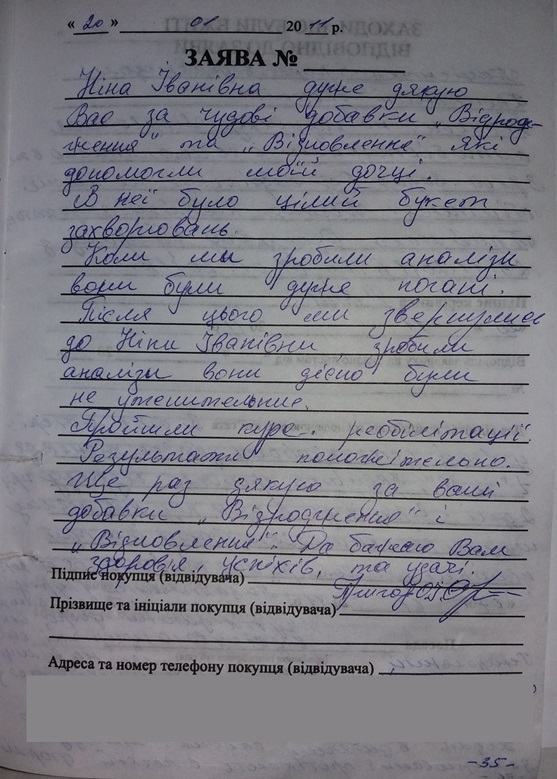 « 20 » 01 2011 р.
ЗАЯВА №
Ніна Іванівна дуже дякую
Вас за чудові добавки „Відрод-
ження" та „Відновлення" які
допомогли моїй дочці.
В неї було цілий букет
захворювань.
Коли ми зробили аналізи
вони були дуже погані.
Після цього ми звернулися
до Ніни Іванівни зробили
аналізи вони дісно були
не утешительние.
Пройшли курс реобілітації.
Результати положительно.
Ще раз дякую за ваші
добавки „Відродження" і
„Відновлення". Да бажаю Вам
здоров'я, успіхів, та удачі.
Підпис покупця (відвідувача)
Прізвище та ініціали покупця (відвідувача)
Адреса та номер телефону покупця (відвідувача)
-35-